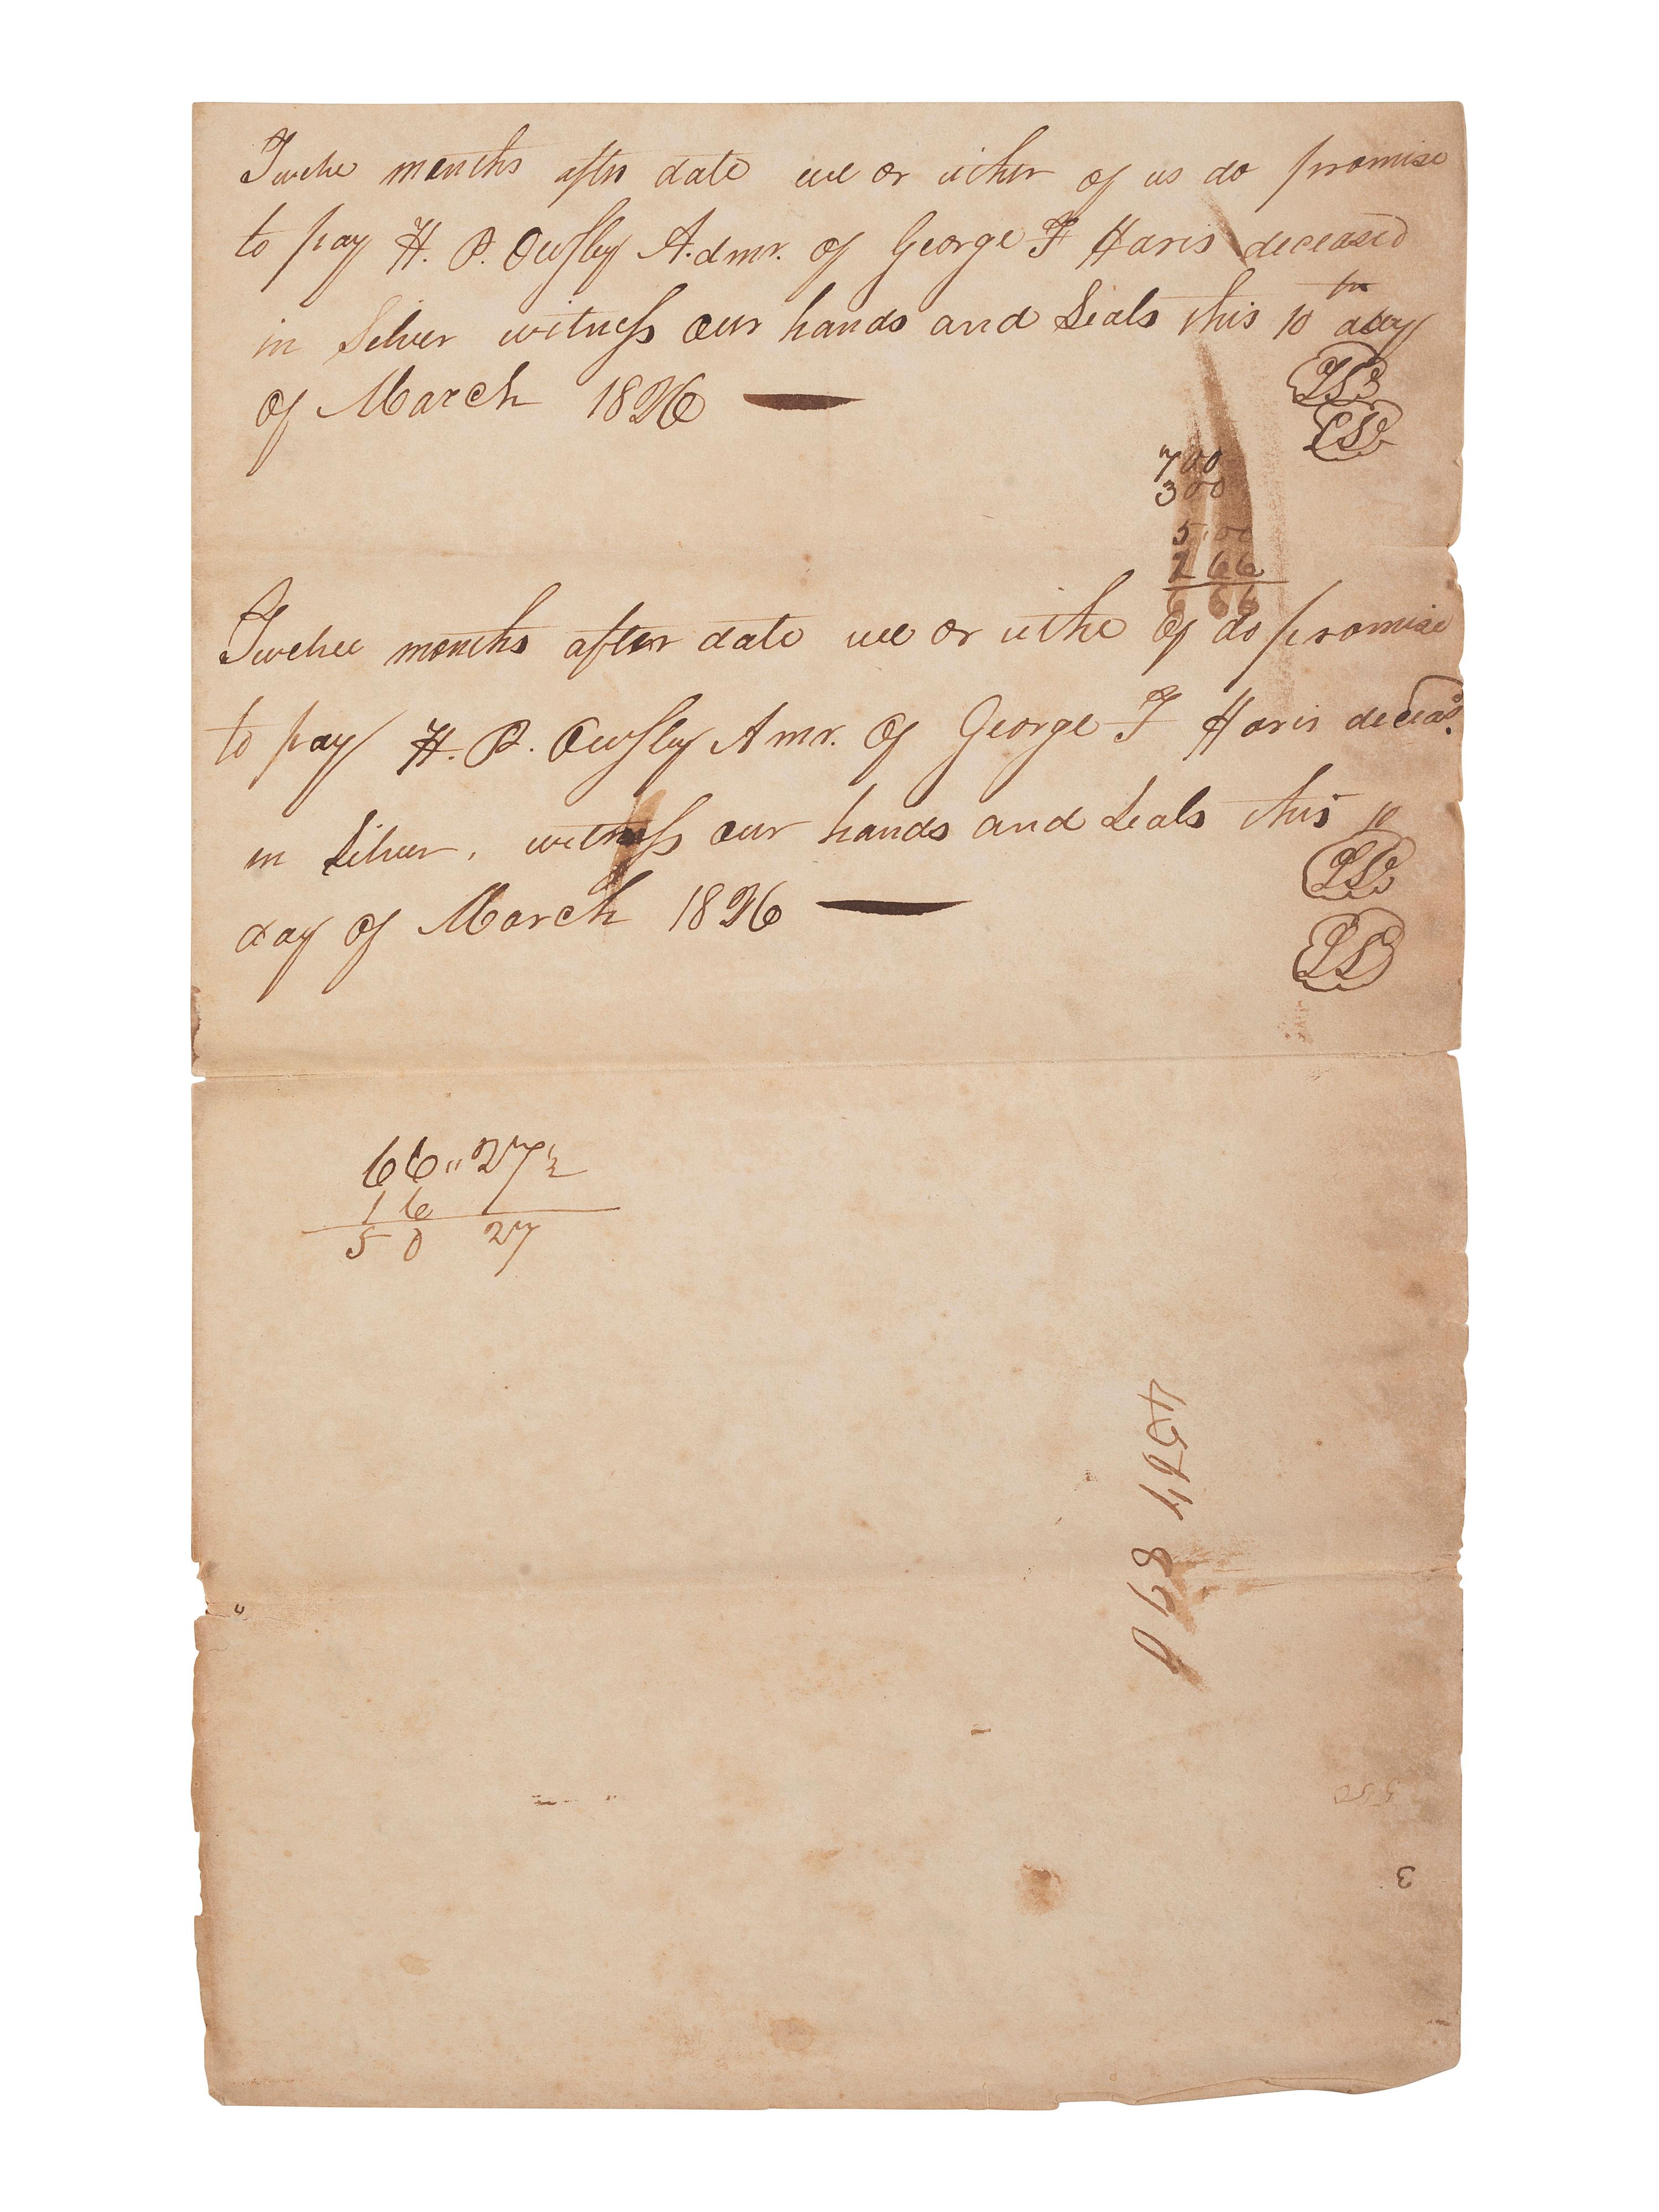 Twelve months after date we or ither of us do promise
to pay H. P. Owsley A.dmr. of George F Haris deceased
in Silver witness our hands and Seals this 10th day
of March 1826
LS
LS
700
300
5,00
166
6 66
Twelvee months after date we or ithe of do promise
to pay H. P. Owsley Amr. of George F Haris deceasd.
in Silver, witness our hands and Seals this 10
day of March 1826
LS
LS
66 " 27 1/2
16
50 27
3